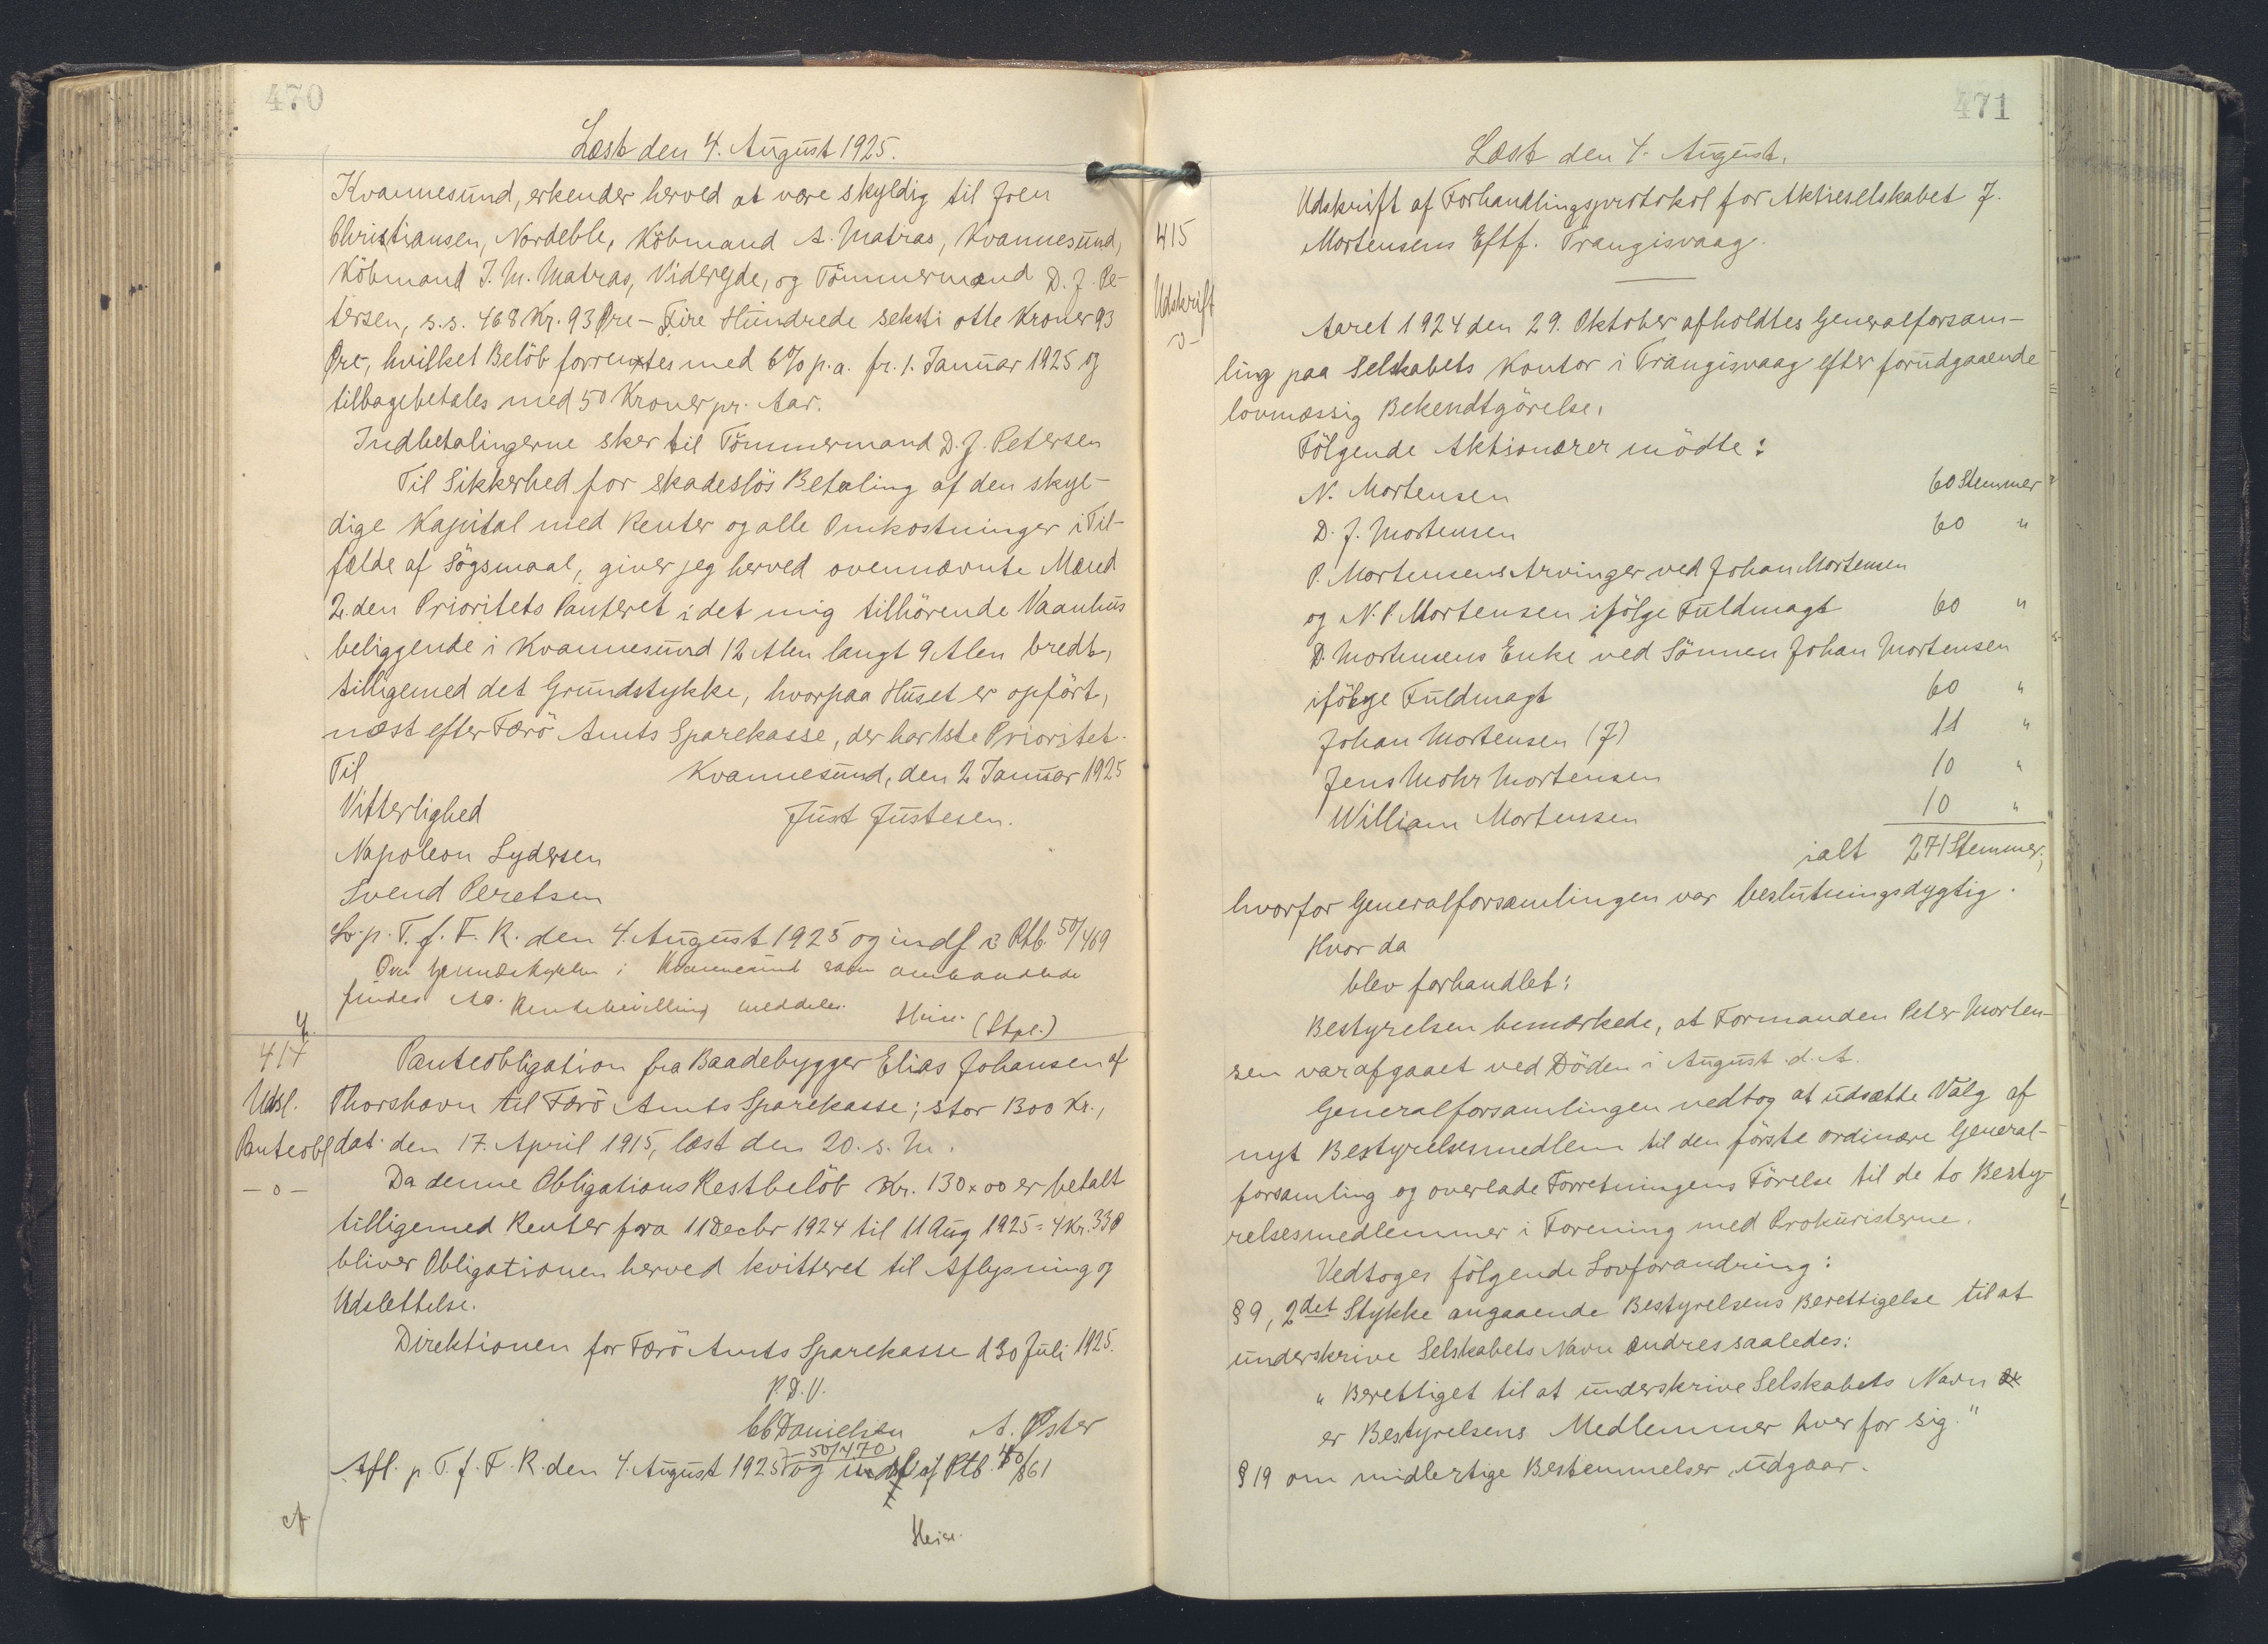 470
Læst den 4. August 1925.
Kvannesund, erkender herved at være skyldig til Joen
Christiansen, Nordeble, Köbmand A. Matras, Kvannesund,
Köbmand J. M. Matras, Viderejde, og Tömmermand D. J. Pe-
tersen, s.s. 468 Kr. 93 Øre - Fire Hundrede seksti otte Kroner 93
Øre, hvilket Belöb forrentes med 6% p.a. fr. 1. Januar 1925 og
tilbagebetales med 50 Kroner pr. Aar.
Indbetalingerne sker til Tömmermand D. J. Petersen
Til Sikkerhed for skadeslös Betaling af den skyl-
dige Kapital med Renter og alle Omkostninger i Til-
fælde af Sögsmaal, giver jeg herved ovennævnte Mænd
2.den Prioritets Panteret i det mig tilhörende Vaanhus
beliggende i Kvannesund 12 Alen langt 9 Alen bredt,
tilligemed det Grundstykke, hvorpaa Huset er opfört,
næst efter Færö Amts Sparekasse, der har 1ste Prioritet.
Til Kvannesund, den 2 Januar 1925
Vitterlighed Just Justesen.
Napoleon Lydersen
Svend Peretsen
L. p. T. f. F. R. den 4. August 1925 og indf i Ptb. 50/469
Ovn Grundstykken i Kvannesund som ombandlede
findes No. Rentebevilling meddeles. Heise. (Stpl.)
414
Udsl.
Panteobl
-o-
Panteobligation fra Baadebygger Elias Johansen af
Thorshavn til Færö Amts Sparekasse; stor 1300 Kr.,
dat. den 17. April 1915, læst den 20. s. M.
Da denne Obligations Restbelöb Kr. 130x00 er betalt
tilligemed Renter fra 11 Decbr 1924 til 11 Aug 1925 = 4 Kr. 33 Ø
bliver Obligationen herved kvitteret til Aflysning og
Udslettelse.
Direktionen for Færö Amts Sparekasse d 30 Juli 1925.
P.D.V.
CC Danielsen A. Øster
50/470
Afl. p. T. f. F. R. den 4. August 1925 og udsl af Ptb. 40/861
Heise.
471
Læst den 4. August.
415
Udskrift
-o-
Udskrift af Forhandlingsprotokol for Aktieselskabet J.
Mortensens Eftf. Trangisvaag.
Aaret 1924 den 29. Oktober afholdtes Generalforsam-
ling paa Selskabets Kontor i Trangisvaag efter forudgaaende
lovmæssig Bekendtgörelse.
Fölgende Aktionærer mödte:
N. Mortensen 60 Stemmer
D. J. Mortensen 60 "
P. Mortensens Arvinger ved Johan Mortensen
og N. P. Mortensen ifölge Fuldmagt 60 "
D. Mortensens Enke ved Sönnen Johan Mortensen
ifölge Fuldmagt 60 "
Johan Mortensen (J) 11 "
Jens Mohr Mortensen 10 "
William Mortensen 10 "
ialt 271 Stemmer;
hvorfor Generalforsamlingen var beslutningsdygtig.
Hvor da
blev forhandlet:
Bestyrelsen bemærkede, at Formanden Peter Morten-
sen var afgaaet ved Döden i August d. A.
Generalforsamlingen vedtog at udsætte Valg af
nyt Bestyrelsesmedlem til den förste ordinære General-
forsamling og overlade Forretningens Förelse til de to Besty-
relsesmedlemmer i Forening med Prokuristerne.
Vedtoges fölgende Lovforandring:
§ 9, 2det Stykke angaaende Bestyrelsens Berettigelse til at
underskrive Selskabets Navn ændres saaledes:
" Berettiget til at underskrive Selskabets Navn
er Bestyrelsens Medlemmer hver for sig."
§ 19 om midlertige Bestemmelser udgaar.